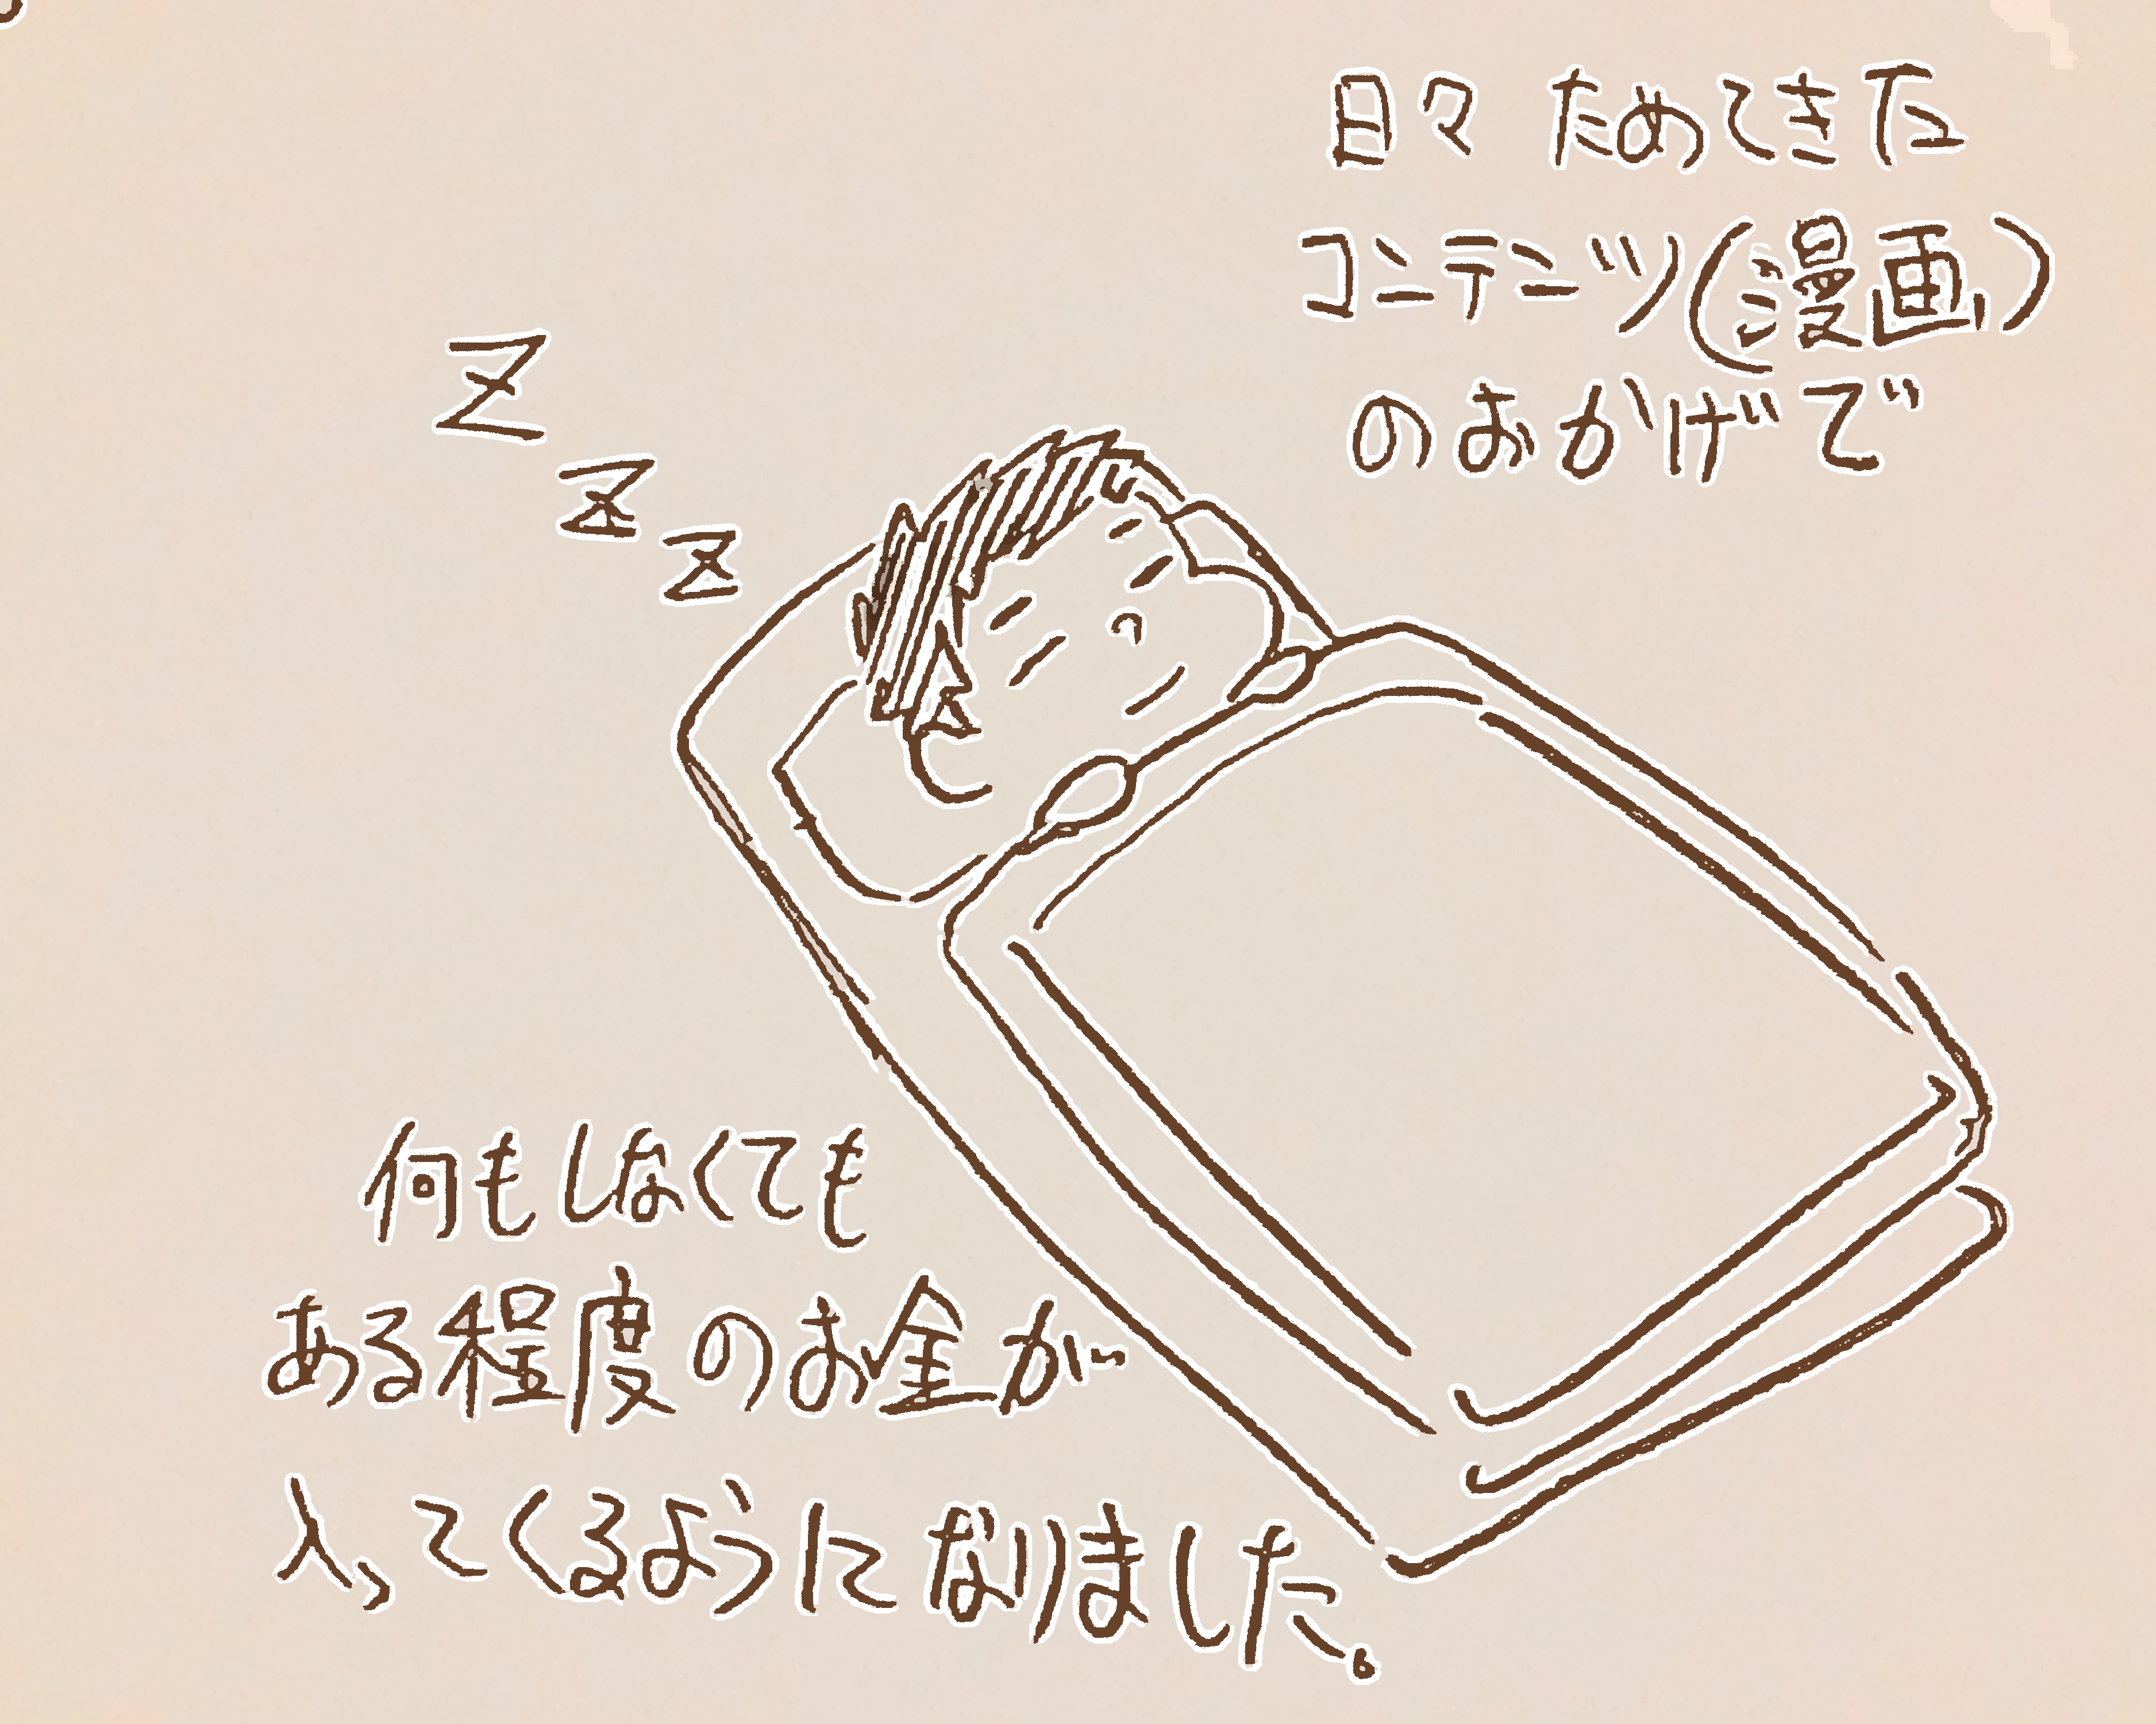 日々 ためてきた
コンテンツ(漫画)
のおかげで
Z
Z
Z
何もしなくても
ある程度のお金が
入ってくるようになりました。